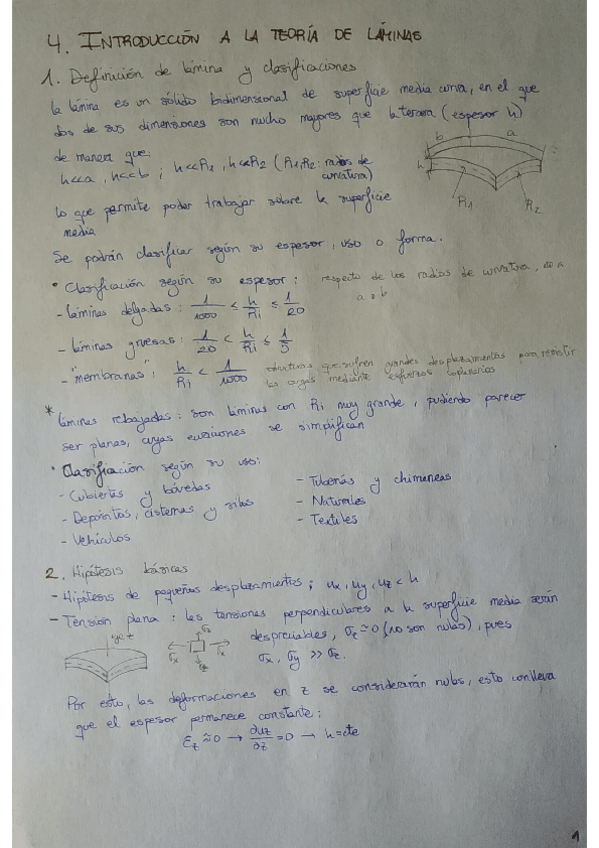 4. INTRODUCCIÓN A LA TEORÍA DE LÁMINAS
1. Definición de lámina y clasificaciones
La lámina es un sólido bidimensional de superficie media curva, en el que
dos de sus dimensiones son mucho mayores que la tercera (espesor h)
de manera que:
h<<a, h<<b ; h<<R1, h<<R2 (R1, R2: radios de
curvatura)
b a
h
R1 R2
lo que permite poder trabajar sobre la superficie
media
Se podrán clasificar según su espesor, uso o forma.
· Clasificación según su espesor: respecto de los radios de curvatura, no a
a o b
- Láminas delgadas: 1/1000 ≤ h/Ri ≤ 1/20
- Láminas gruesas: 1/20 < h/Ri ≤ 1/5
- "membranas": h/Ri < 1/1000 estructuras que sufren grandes desplazamientos para resistir
las cargas mediante esfuerzos coplanarios
* Láminas rebajadas: son láminas con Ri muy grande, pudiendo parecer
ser planas, cuyas ecuaciones se simplifican
· Clasificación según su uso:
- Cubiertas y bóvedas
- Depósitos, cisternas y silos
- Vehículos
- Tuberías y chimeneas
- Naturales
- Textiles
2. Hipótesis básicas
- Hipótesis de pequeños desplazamientos; ux, uy, uz < h
- Tensión plana: las tensiones perpendiculares a la superficie media serán
despreciables, σz ≃ 0 (no son nulas), pues
σx, σy >> σz.
eje z
σz
σx σx
σz
Por esto, las deformaciones en z se considerarán nulas, esto conlleva
que el espesor permanece constante:
εz ≈ 0 → ∂uz/∂z = 0 → h = cte
1